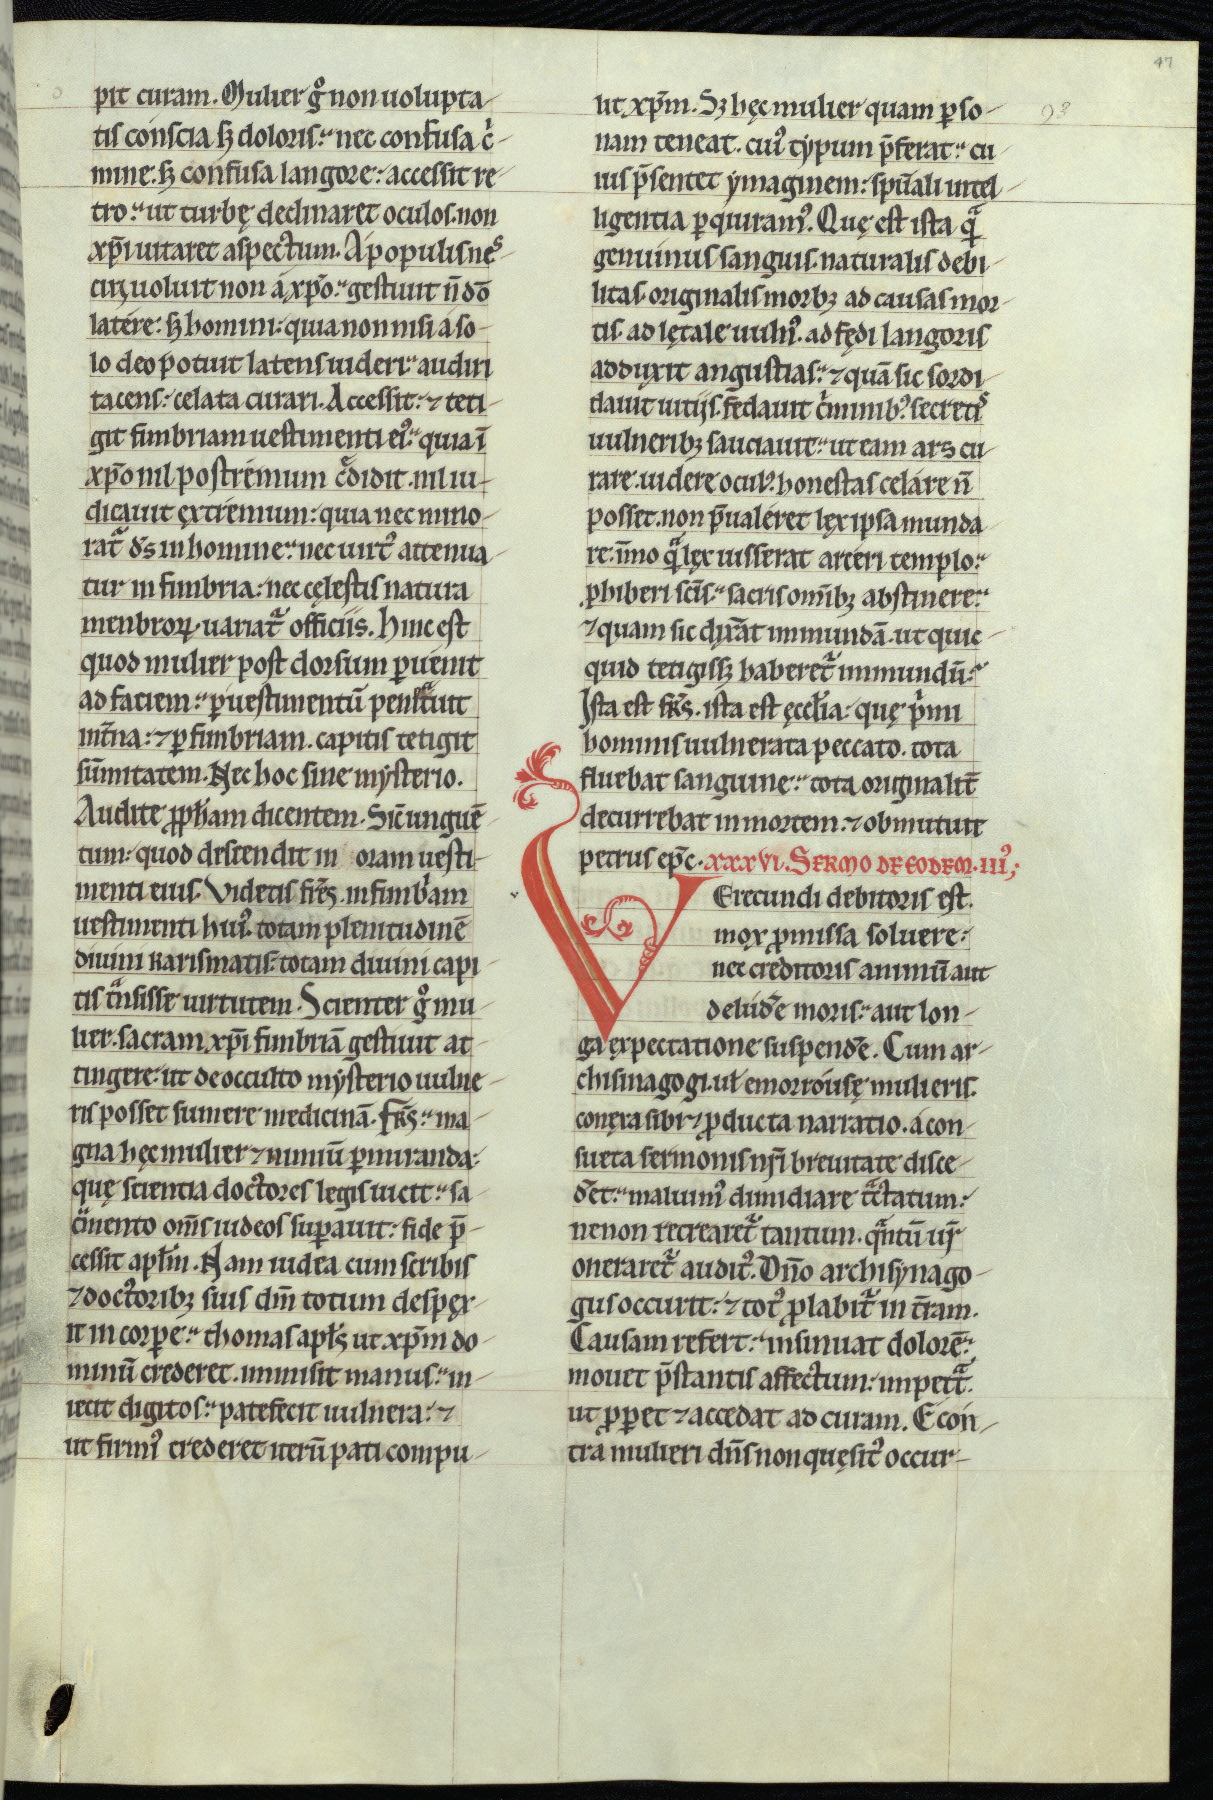 47
93
pit curam. Mulier gͦ non uolupta-
tis conscia sꝫ doloris. nec confusa c̾-
mine: sꝫ confusa langore: accessit re-
tro: ut turbę declinaret oculos. non
xp̄i uitaret aspectum. A populis nes
ciri uoluit non á xp̄o. gestiuit n̄ dō
latére: sꝫ homini: quia non nisi a so-
lo deo potuit latens uideri: audiri
tacens: celata curari. Accessit: ⁊ teti-
git fimbriam uestimenti ei᾿. quia ī
xp̄o nil postrémum cᷓdidit. nil iu-
dicauit extrémum: quia nec mino-
ratᷓ d̄s in homine: nec uirt᾿ attenua-
tur in fimbria: nec cęlestis natura
menbroꝝ uariatᷓ officiis. Hinc est
quod mulier post dorsum ꝑuenit
ad faciem: ꝑ uestimentū penetᷓuit
int̄na: ⁊ ꝑ fimbriam. capitis tetigit
sūmitatem. Nec hoc sine mysterio.
Audite ꝓph̄am dicentem. Sic̄ unguē-
tum: quod descendit in oram uesti-
menti eius. Videtis fr̄es. in fimbⁱam
uestimenti hui᾿. totam plenitudinē
diuini karismatis. totam diuini capi-
tis tᷓnsisse uirtutem. Scienter gͦ mu-
lier. sacram xp̄i fimbriā gestiuit at-
tingere: ut de occulto mysterio uulne-
ris posset sumere medicinā. Fr̄s: ma-
gna hęc mulier ⁊ nimiū ꝑmiranda:
quę scientia doctores legis uicit: sa-
cᷓmento om̄s iudeos suꝑauit: fide p̄-
cessit apl̄m. Nam iudea cum scribis
⁊ doctoribꝫ suis dm̄ totum despex-
it in corꝑe: thomas apl̄s ut xp̄m do-
minū crederet. inmisit manus: in-
iecit digitos: patefecit uulnera: ⁊
ut firmi᾿ crederet uerū pati compu-
lit xp̄m. Sꝫ hęc mulier quam ꝑso-
nam teneat. cui᾿ typum p̄ferat: cu-
ius p̄sentet ymaginem: spū̄ali intel-
ligentia ꝑquiram᾿. Quę est ista qᷓ
genuinus sanguis. naturalis debi-
litas. originalis morbꝫ ad causas mor-
tis. ad lętale uuln᾿. ad fędi langoris
adduxit angustias: ⁊ quā sic sordi-
dauit uitijs. fedauit cⁱminibꝫ. secretis
uulneribꝫ sauciauit: ut eam ars cu-
rare. uidere ocul᾿. honestas celáre n̄
posset. non p̄ualéret lex ipsa munda-
re. īmo qᷓ lex iusserat arceri templo:
ꝓhiberi sc̄is: sacris om̄ibꝫ abstinere:
⁊ quam sic dixᷓat inmundā. ut quic-
quid tetigissꝫ haberetᷓ inmundū:
Ista est fr̄s. ista est ęccl̄ia: quę pⁱmi
hominis uulnerata peccato. tota
fluebat sanguine: tota originalit̄
decurrebat in mortem: ⁊ obmutuit
petrus ep̄c. xxxvi. SERMO DE EODEM. III᾿;
VErecundi debitoris est.
mox ꝓmissa soluere:
nec creditoris animū aut
deludᷓe moris: aut lon-
ga expectatione suspendᷓe. Cum ar-
chisinagogi. uł emorroúsę mulieris.
conexa sibi ⁊ ꝓducta narratio. á con-
sueta sermonis nr̄i breuitate disce-
dᷓet: maluim᾿ dimidiare tᷓctatum:
ne non recrearetᷓ tantum. qᷓntū ur̄
oneraretᷓ audit᾿. Dn̄o archisynago-
gus occurit: ⁊ tot᾿ ꝓlabitᷓ in t̄ram.
Causam refert: insinuat dolorē:
mouet p̄stantis affectum: impetᷓt.
ut ꝓꝑet ⁊ accedat ad curam. E con-
tra mulieri dn̄s non quęsit᾿ occur-